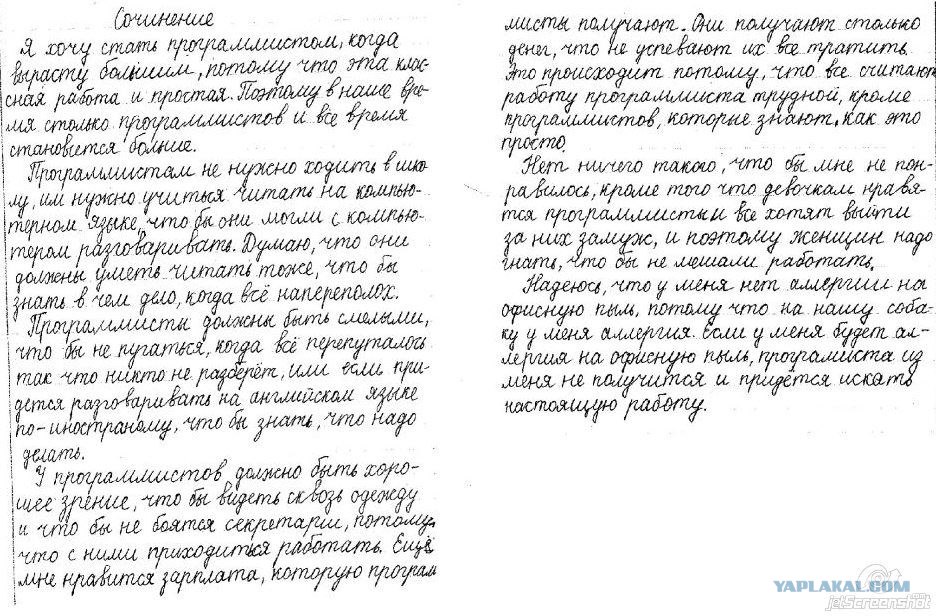 Сочинение
Я хочу стать программистом, когда
вырасту большим, потому что эта клас-
сная работа и простая. Поэтому в наше вре-
мя столько программистов и всё время
становется больше.
Программистам не нужно ходить в шко-
лу, им нужно учиться читать на компью-
терном языке, что бы они могли с компью-
тером разговаривать. Думаю, что они
должны уметь читать тоже, что бы
знать в чем дело, когда всё напереполох.
Программисты должны быть смелыми,
что бы не пугаться, когда всё перепуталось
так что никто не разберёт, или если при-
дется разговаривать на английском языке
по-иностраному, что бы знать, что надо
делать.
У программистов должно быть хоро-
шее зрение, что бы видеть сквозь одежду
и что бы не боятся секретарш, потому
что с ними приходиться работать. Ещё
мне нравится зарплата, которую програм
мисты получают. Они получают столько
денег, что не успевают их все тратить.
Это происходит потому, что все считают
работу программиста трудной, кроме
программистов, которые знают, как это
просто.
Нет ничего такого, что бы мне не пон-
равилось, кроме того что девочкам нравя-
тся программисты и все хотят выйти
за них замуж, и поэтому женщин надо
гнать, что бы не мешали работать.
Надеюсь, что у меня нет аллергии на
офисную пыль, потому что на нашу соба-
ку у меня аллергия. Если у меня будет ал-
лергия на офисную пыль, програмиста из
меня не получится и придётся искать
настоящую работу.
YAPLAKAL.COM
jetScreenshot